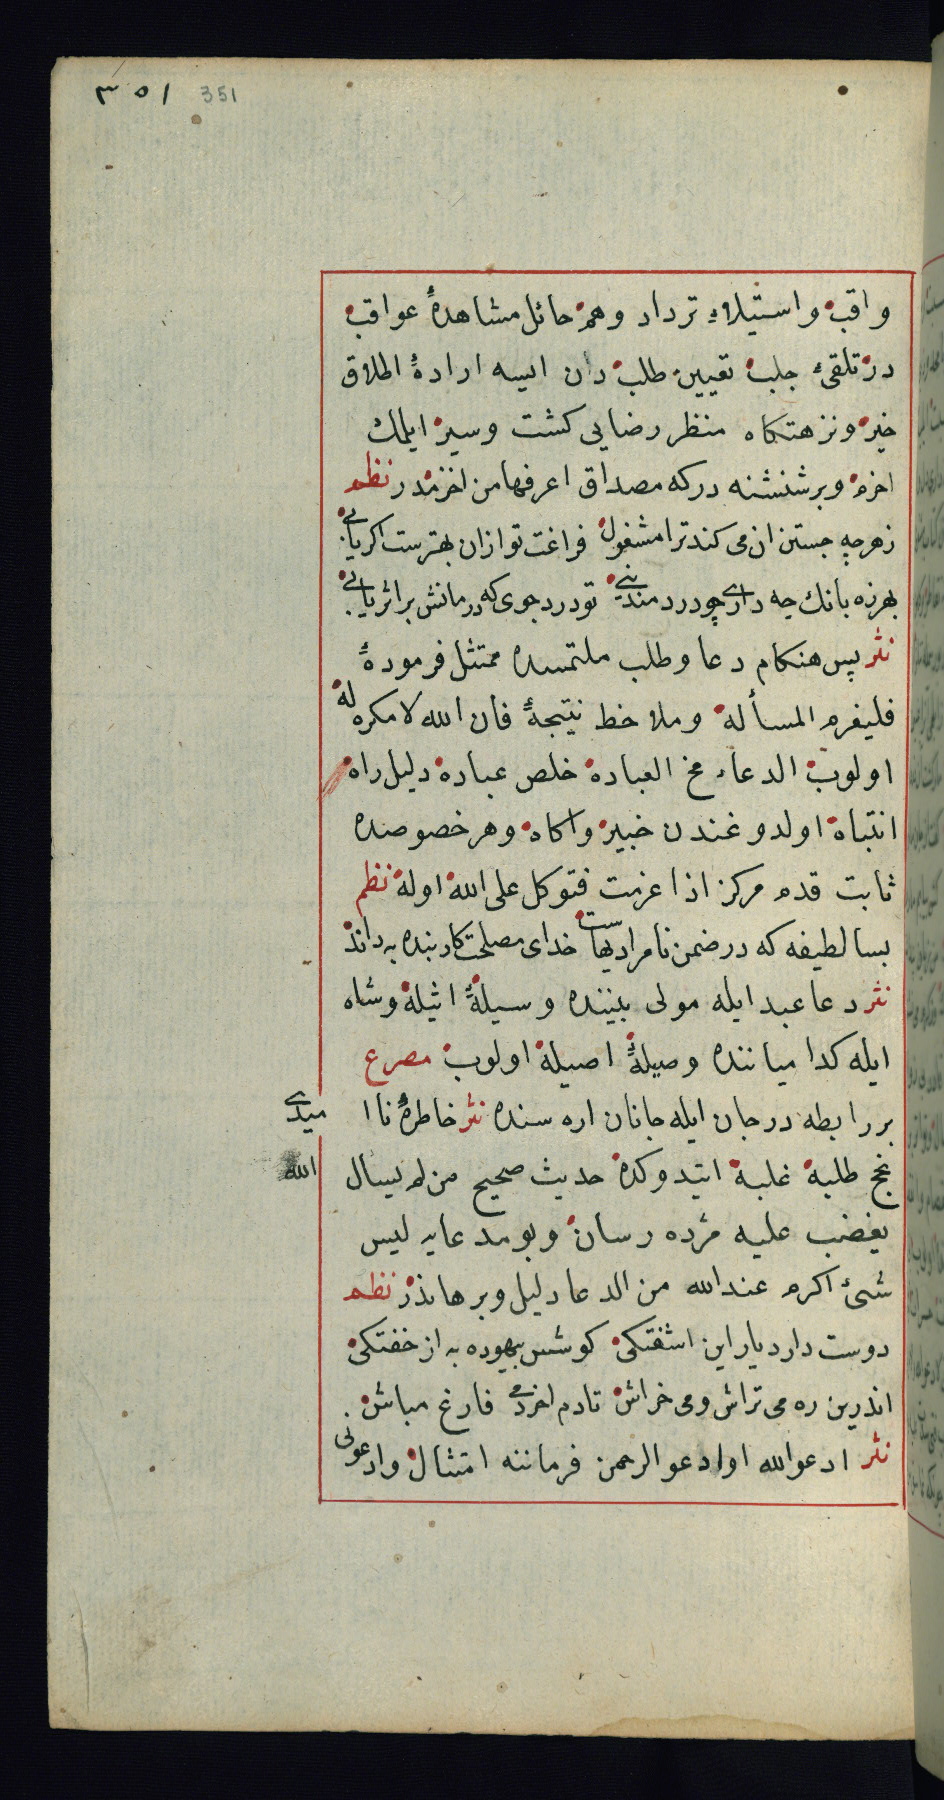 ٣٥١ 351
واقب واستیلاء ترداد وهم حائل مشاهدهٔ عواقب
در تلقیٔ جلب تعیین طلب دن ایسه ارادهٔ اطلاق
خیر ونزهتکاه منظر رضایی کشت وسیر ایلمك
اخزم وبر شنشنه درکه مصداق اعرفها من اخزمدر نظم
زهرچه جستن ان می کند ترا مشغول فراغت تو ازان بهترست اکر یابی
بهرزه بانك چه داری چو دردمند نیی تو درد جوی که درمانش بر اثر یابی
نثر پس هنکام دعا وطلب ملتمسده ممتثل فرمودهٔ
فلیغرم المسألة وملاحظ نتیجهٔ فان الله لا مکره له
اولوب الدعاء مخ العبادة خلص عباده دلیل راه
انتباه اولدوغندن خبیر واکاه وهر خصوصده
ثابت قدم مرکز اذا عزمت فتوکل علی الله اوله نظم
بسا لطیفه که در ضمن نامرادیهاست خدای مصلحت کار بنده به داند
نثر دعا عبد ایله مولی بیننده وسیلهٔ اثیله وشاه
ایله کدا میاننده وصیلهٔ اصیله اولوب مصرع
بر رابطه در جان ایله جانان اره سنده نثر خاطرهٔ نا امیدی
نجح طلبه غلبه ایتدوکده حدیث صحیح من لم یسال الله
یغضب علیه مژده رسان وبو مدعایه لیس
شیٔ اکرم عند الله من الدعا دلیل وبرهاندر نظم
دوست دارد یار این اشفتکی کوشش بیهوده به از خفتکی
اندرین ره می تراش ومی خراش تا دم اخر دمی فارغ مباش
نثر ادعوالله او ادعو الرحمن فرماننه امتثال وادعونی